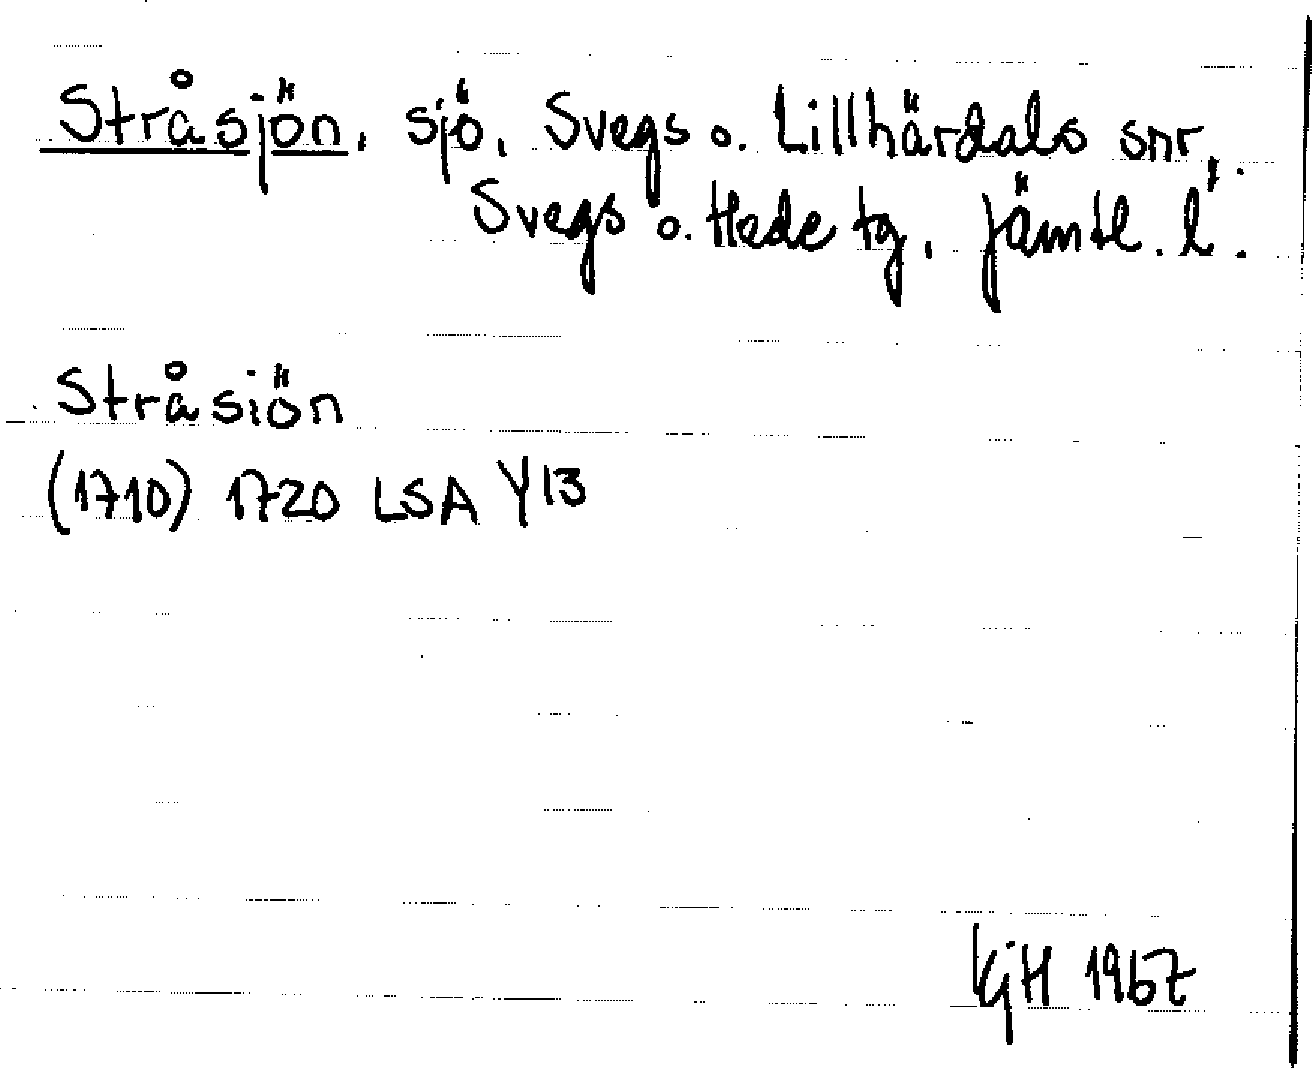 Stråsjön, sjö, Svegs o. Lillhärdals snr,
Svegs o. Hede tg, Jämtl. l.
Stråsiön
(1710) 1720 LSA Y13
KjH 1967